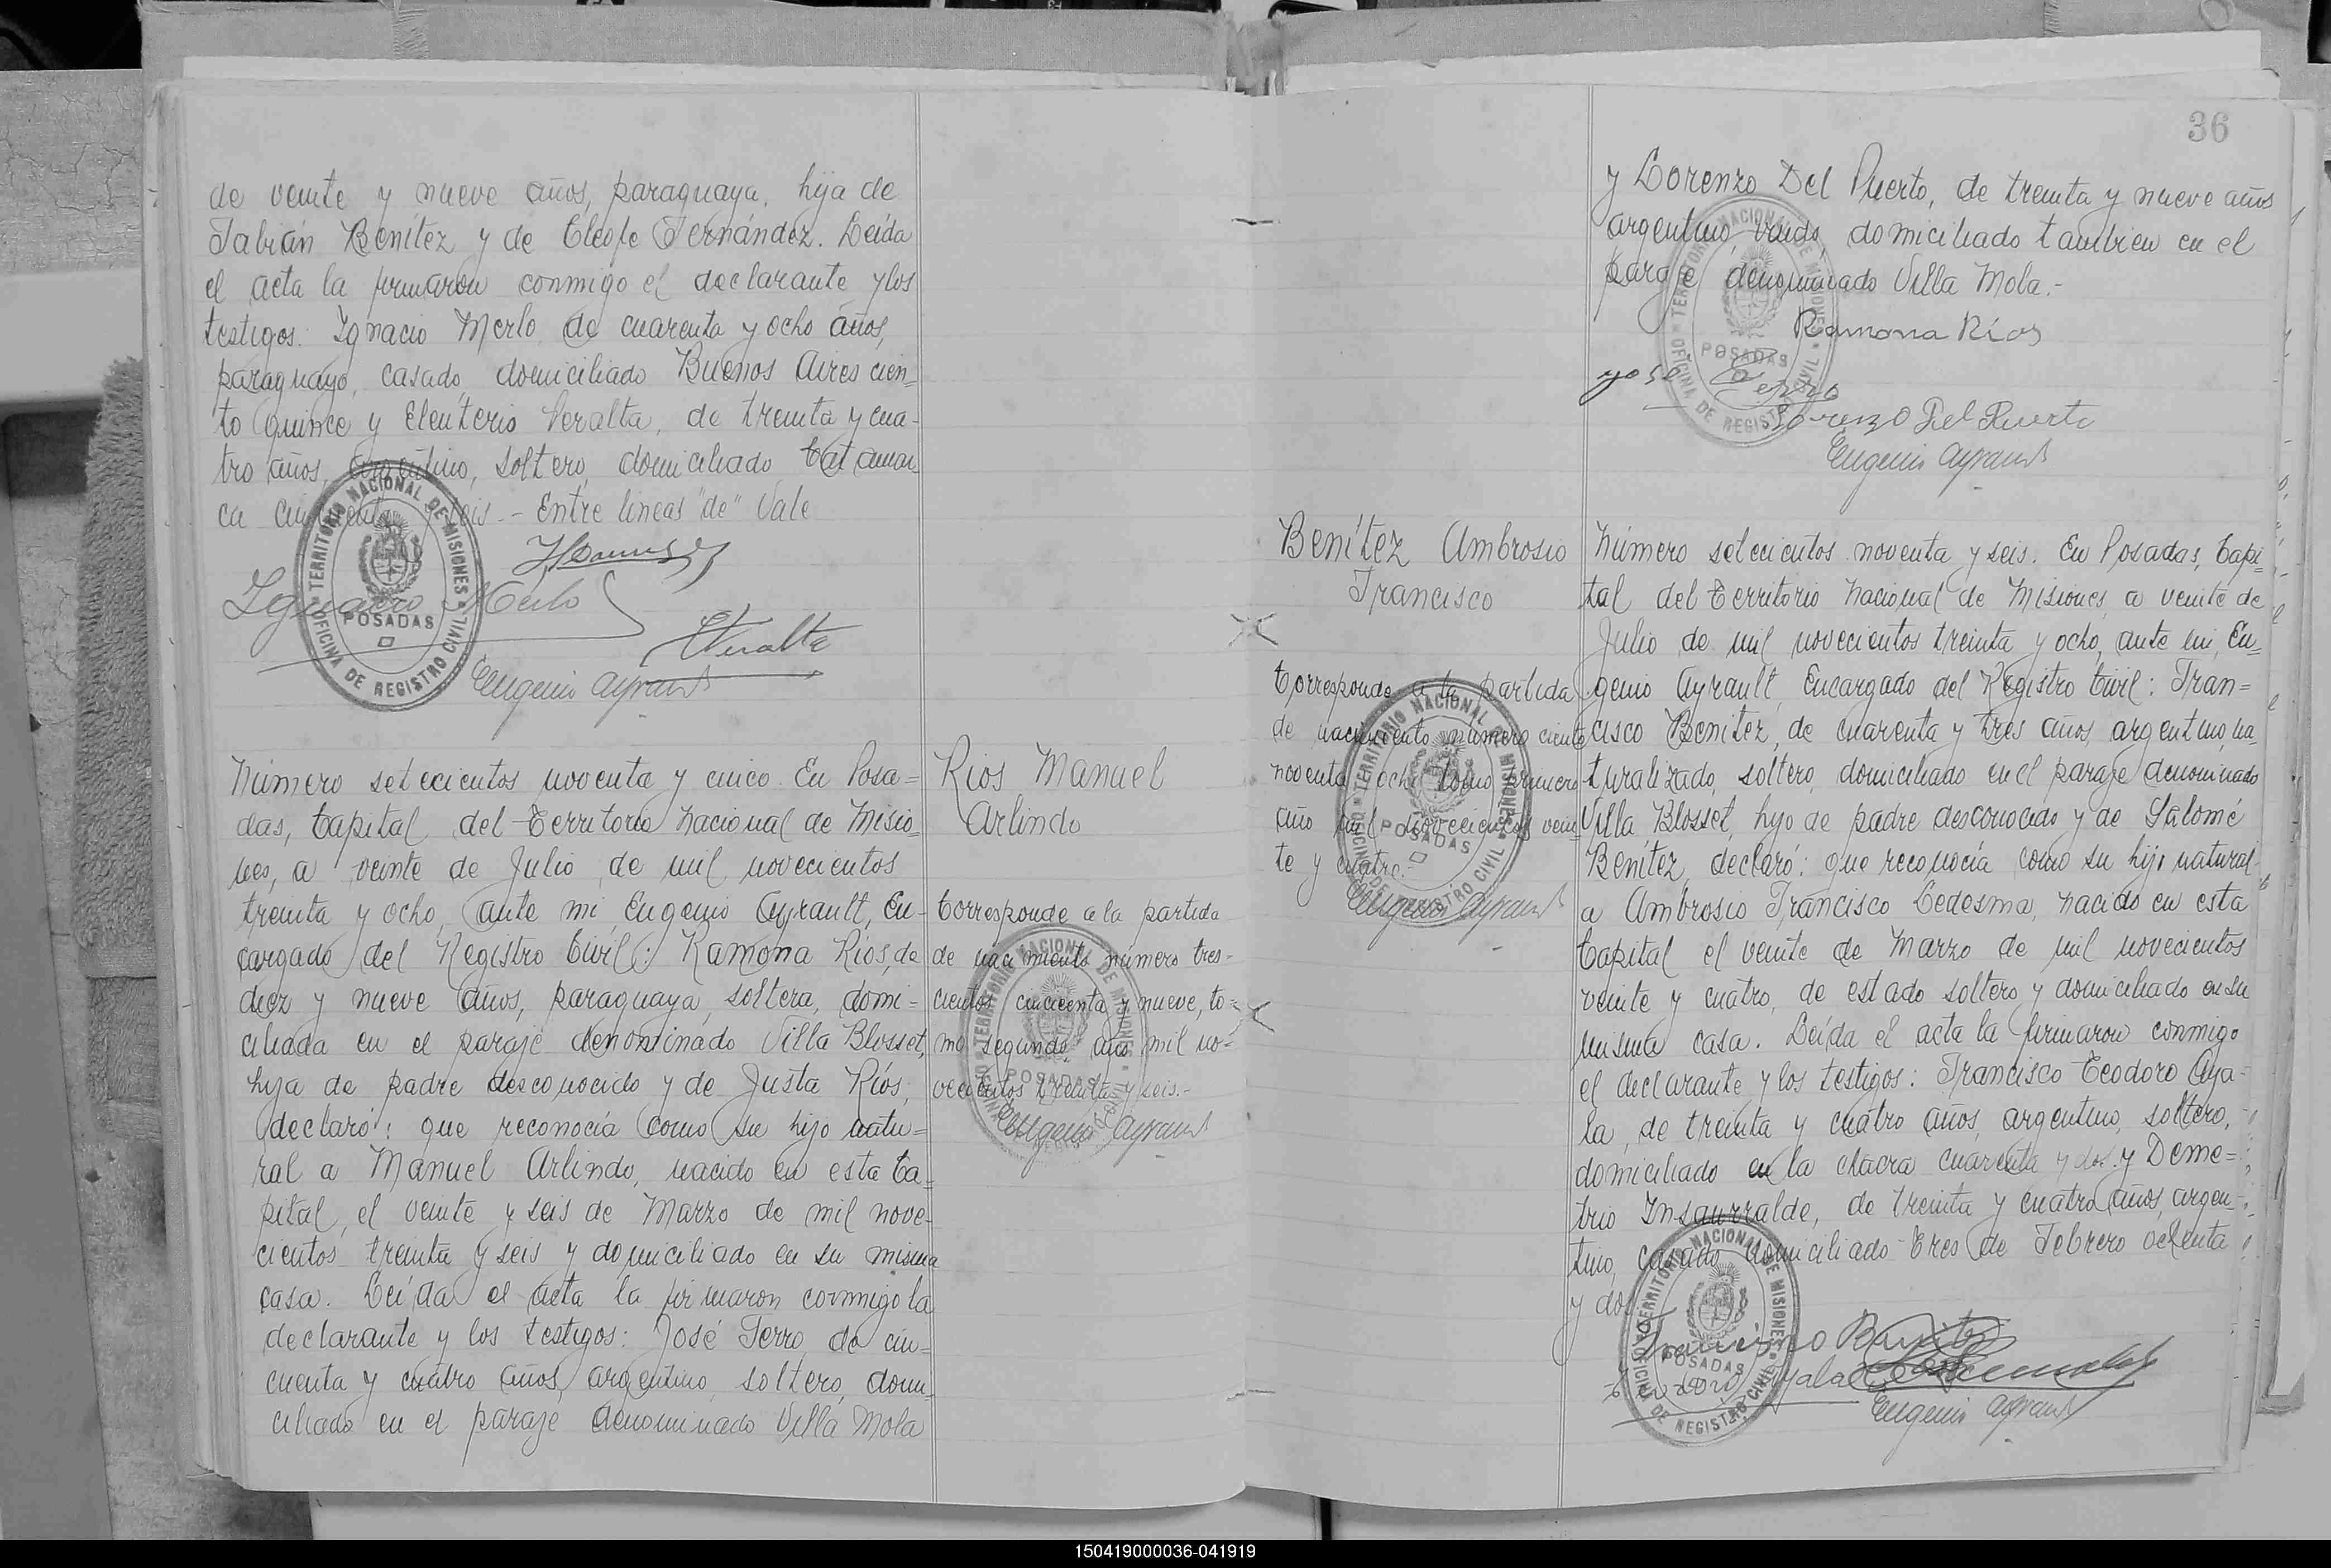 de veinte y nueve años, paraguaya, hija de
Fabián Benítez y de Cleofe Fernández. Leída
el acta la firmaron conmigo el declarante y los
testigos: Ignacio Merlo, de cuarenta y ocho años,
paraguayo, casado, domiciliado Buenos Aires cien-
to quince y Eleuterio Peralta, de treinta y cua-
tro años, argentino, soltero, domiciliado Catamar-
ca cincuenta y seis.- Entre lineas "de" Vale
Ignacio Merlo
EPeralta
Eugenio Ayrault
TERRITORIO NACIONAL DE MISIONES
POSADAS
OFICINA DE REGISTRO CIVIL
Número setecientos noventa y cinco. En Posa=
das, Capital del Territorio Nacional de Misio=
nes, a veinte de Julio de mil novecientos
treinta y ocho, ante mi, Eugenio Ayrault, En-
cargado del Registro Civil: Ramona Ríos, de
diez y nueve años, paraguaya, soltera, domi=
ciliada en el paraje denominado Villa Blosset,
hija de padre desconocido y de Justa Ríos,
declaró: que reconocía como su hijo natu=
ral a Manuel Arlindo, nacido en esta Ca=
pital, el veinte y seis de Marzo de mil nove-
cientos treinta y seis y domiciliado en su misma
casa. Leída el acta la firmaron conmigo la
declarante y los testigos: José Ferro, de cin=
cuenta y cuatro años, argentino, soltero, domi-
ciliado en el paraje denominado Villa Mola
Rios Manuel
Arlindo
Corresponde a la partida
de nacimiento número tres-
cientos cincuenta y nueve, to=
mo segundo, año mil no-
vecientos treinta y seis.-
Eugenio Ayrault
TERRITORIO NACIONAL DE MISIONES
POSADAS
OFICINA DE REGISTRO CIVIL
36
y Lorenzo Del Puerto, de treinta y nueve años
argentino, viudo, domiciliado tambien en el
paraje denominado Villa Mola.-
Ramona Ríos
Lorenzo Del Puerto
Eugenio Ayrault
TERRITORIO NACIONAL DE MISIONES
POSADAS
OFICINA DE REGISTRO CIVIL
Benítez Ambrosio
Francisco
Corresponde a la partida
de nacimiento número ciento
noventa y ocho tomo primero
año mil novecientos vein-
te y cuatro.-
Eugenio Ayrault
TERRITORIO NACIONAL DE MISIONES
POSADAS
OFICINA DE REGISTRO CIVIL
Número setecientos noventa y seis. En Posadas, Capi-
tal del Territorio Nacional de Misiones, a veinte de
Julio de mil novecientos treinta y ocho, ante mi, Eu-
genio Ayrault, Encargado del Registro Civil: Fran=
cisco Benítez, de cuarenta y tres años, argentino, na-
turalizado, soltero, domiciliado en el paraje denominado
Villa Blosset, hijo de padre desconocido y de Salomé
Benítez, declaró: que reconocía como su hijo natural
a Ambrosio Francisco Ledesma, nacido en esta
Capital el veinte de Marzo de mil novecientos
veinte y cuatro, de estado soltero y domiciliado en su
misma casa. Leída el acta la firmaron conmigo
el declarante y los testigos: Francisco Teodoro Aya-
la, de treinta y cuatro años, argentino, soltero,
domiciliado en la chacra cuarenta y dos y Deme=
trio Insaurralde, de treinta y cuatro años, argen-
tino, casado, domiciliado Tres de Febrero ochenta
y dos
Francisco Benitez
Ayala
Eugenio Ayrault
TERRITORIO NACIONAL DE MISIONES
POSADAS
OFICINA DE REGISTRO CIVIL
150419000036-041919